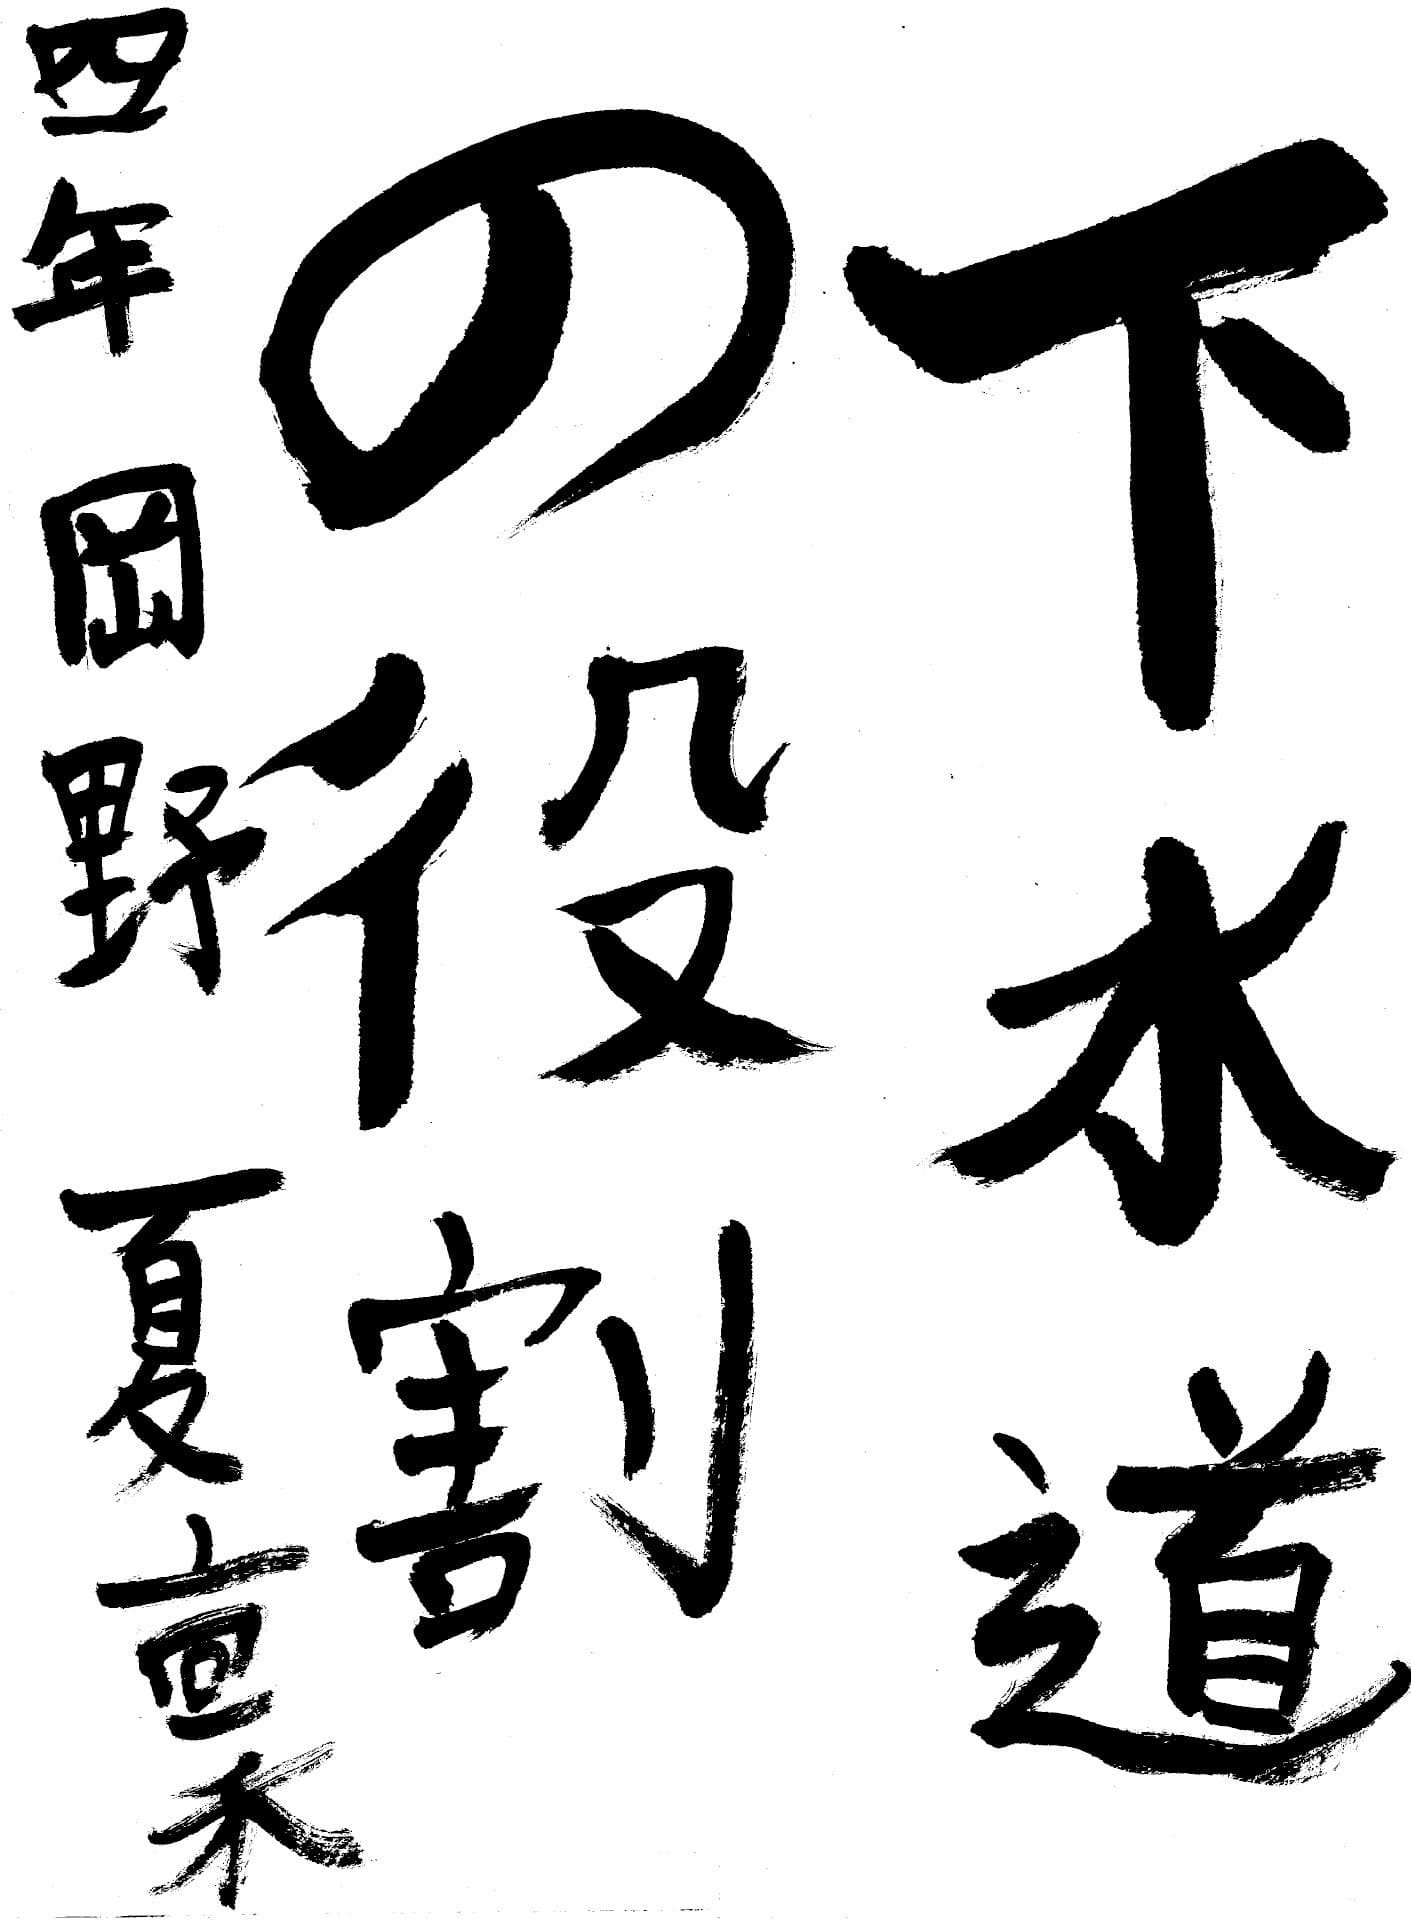 下水道
の役割
四年 岡野 夏稟